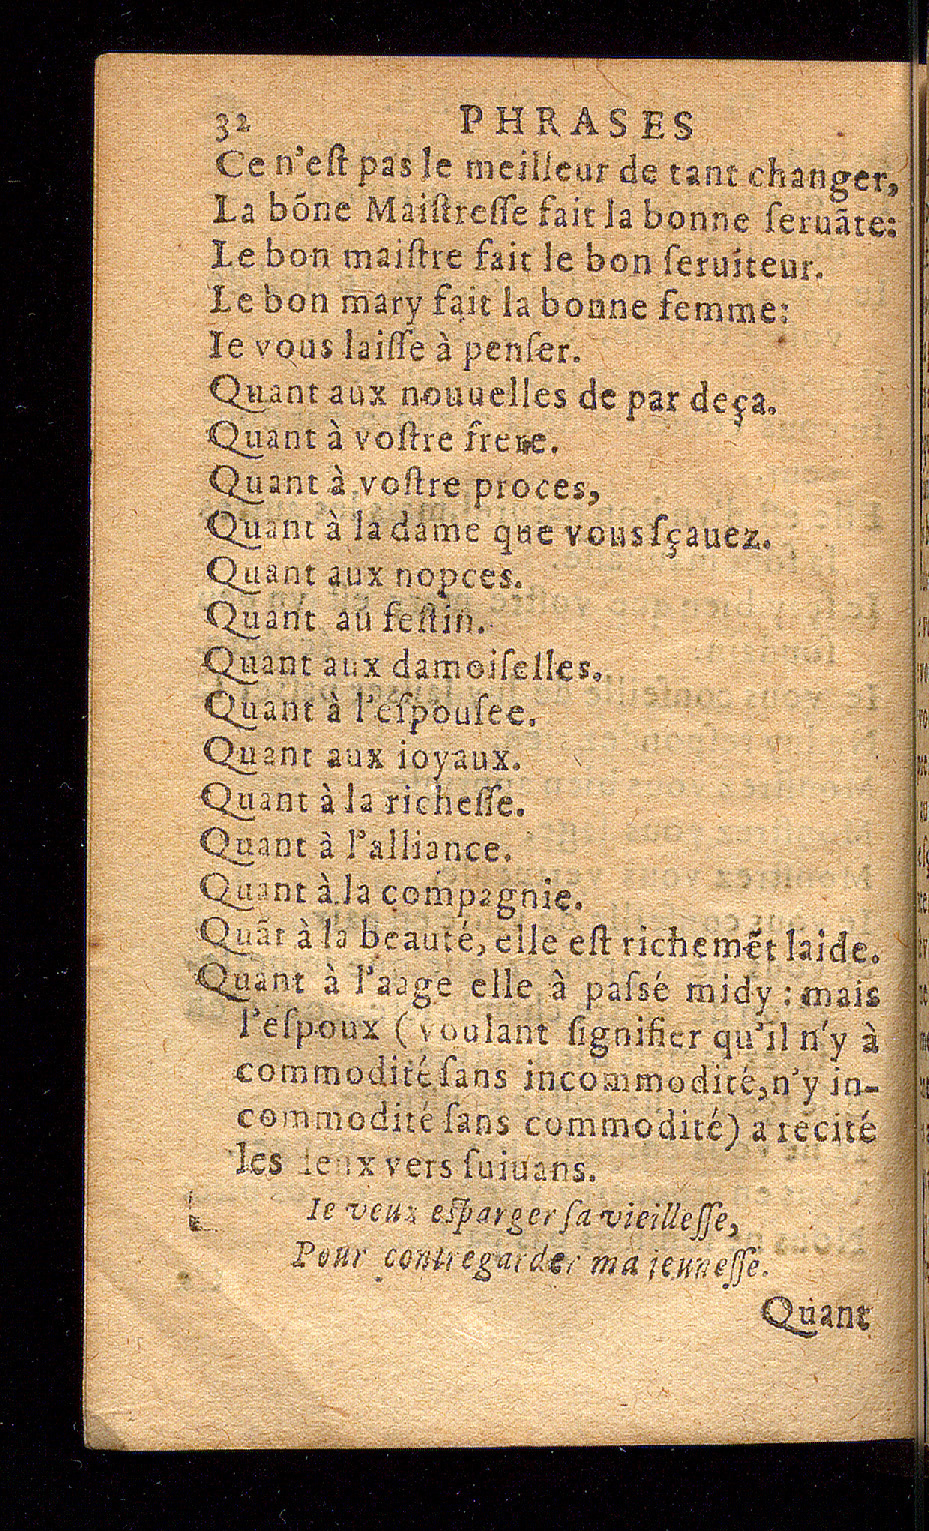 32 PHRASES
Ce n'eſt pas le meilleur de tant changer,
La bõne Maiſtreſſe fait la bonne ſeruãte:
Le bon maiſtre fait le bon ſeruiteur.
Le bon mary fait la bonne femme:
Ie vous laiſſe à penſer.
Quant aux nouuelles de par deça.
Quant à voſtre frere.
Quant à voſtre proces,
Quant à la dame que vous ſçauez.
Quant aux nopces.
Quant au feſtin.
Quant aux damoiſelles.
Quant à l'eſpouſee.
Quant aux ioyaux.
Quant à la richeſſe.
Quant à l'alliance.
Quant à la compagnie.
Quãt à la beauté, elle eſt richemẽt laide.
Quant à l'aage elle à paſſé midy : mais
l'eſpoux (voulant ſignifier qu'il n'y à
commodité ſans incommodité, n'y in-
commodité ſans commodité) a recité
les deux vers ſuiuans.
Ie veux eſparger ſa vieilleſſe,
Pour contregarder ma jeuneſſe.
Quant